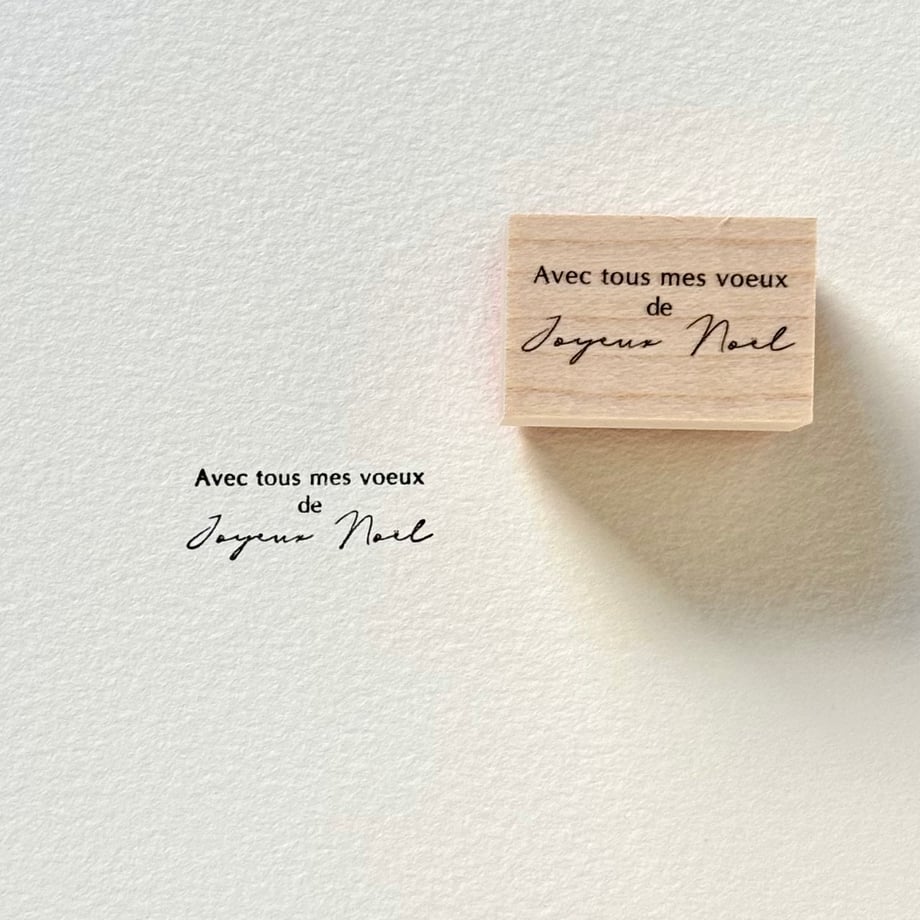 Avec tous mes voeux
de
Joyeux Noël
Avec tous mes voeux
de
Joyeux Noël